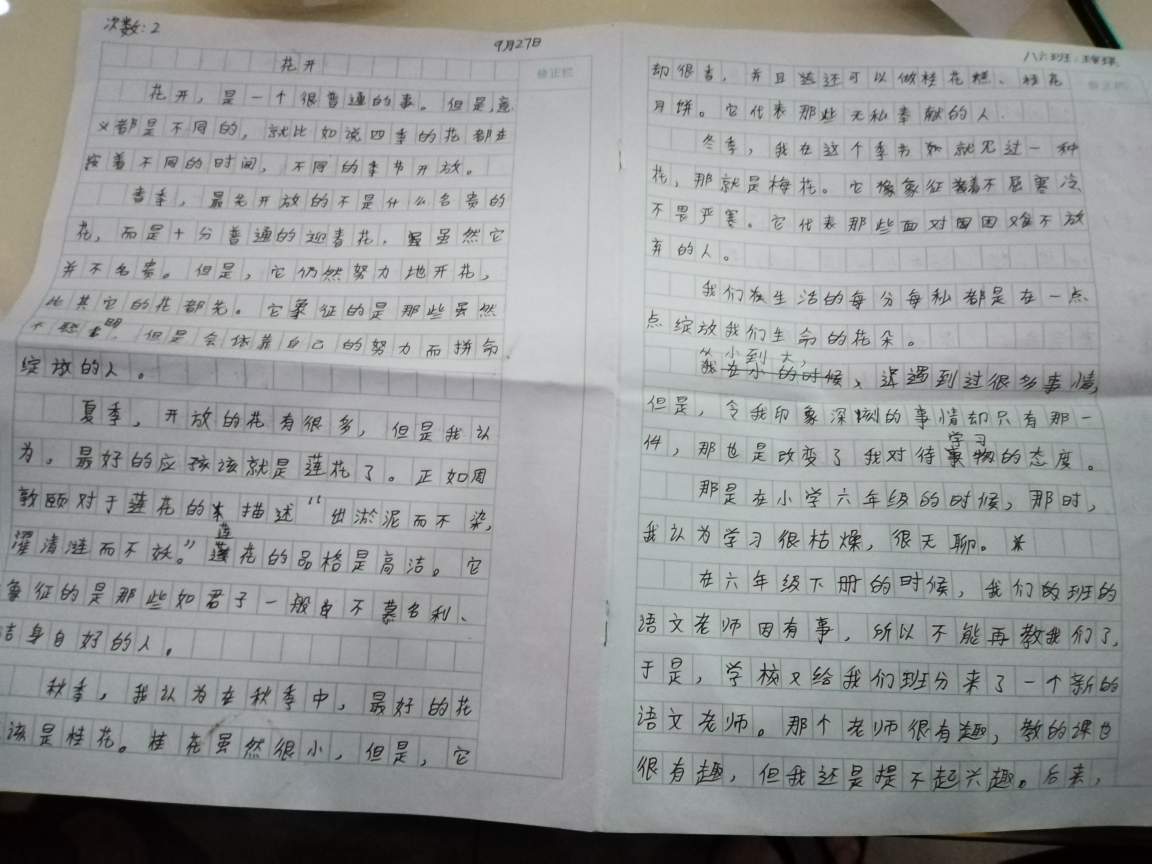 次数：2
9月27日
花开
花开，是一个很普通的事。但是意
义都是不同的，就比如说四季的花都在
着不同的时间，不同的季节开放。
春季，最先开放的不是什么名贵的
花，而是十分普通的迎春花，虽然它
并不名贵。但是，它仍然努力地开花，
比其它的花都先。它象征的是那些虽然
不聪明，但是会依靠自己的努力而拼命
绽放的人。
夏季，开放的花有很多，但是我认
为，最好的应该就是莲花了。正如周
敦颐对于莲花的描述“出淤泥而不染，
濯清涟而不妖。”莲花的品格是高洁。它
象征的是那些如君子一般自不慕名利、
洁身自好的人。
秋季，我认为在秋季中，最好的花
该是桂花。桂花虽然很小，但是，它
修正栏
八六班：
却很香，并且还可以做桂花糕、桂花
月饼。它代表那些无私奉献的人.
冬季，我在这个季节就见过一种
花，那就是梅花。它象征着不屈寒冷
不畏严寒。它代表那些面对困难不放
弃的人。
我们生活的每分每私都是在一点
点绽放我们生命的花朵。
从小到大，遇到过很多事情，
但是，令我印象深刻的事情却只有那一
件，那也是改变了我对待学习的态度。
那是在小学六年级的时候，那时，
我认为学习很枯燥，很无聊。
在六年级下册的时候，我们的班的
语文老师因有事，所以不能再教我们了，
于是，学校又给我们班分来了一个新的
语文老师。那个老师很有趣，教的课也
很有趣，但我还是提不起兴趣。后来，
修正栏